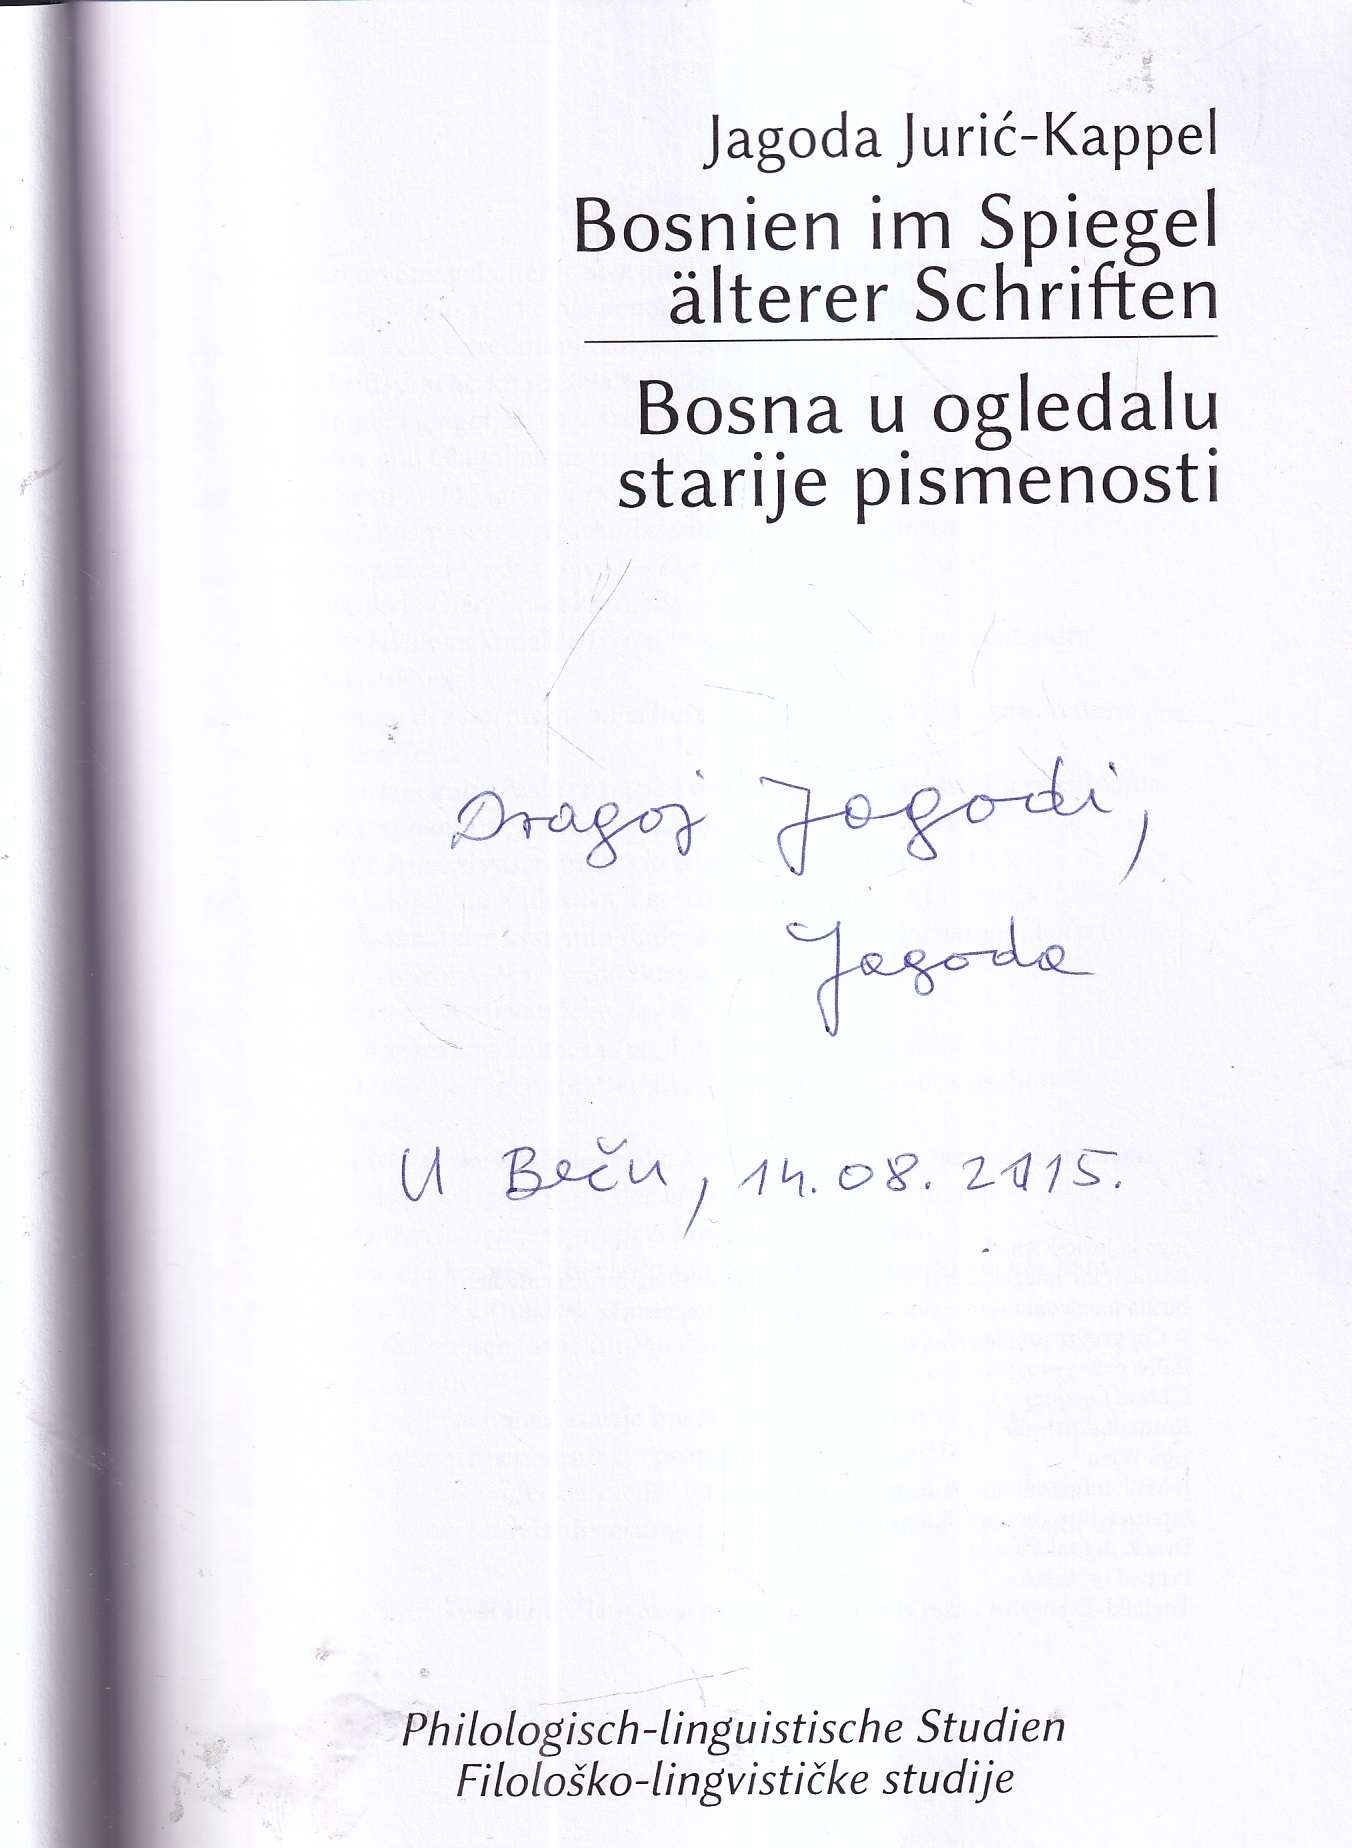 Jagoda Jurić-Kappel
Bosnien im Spiegel
älterer Schriften
Bosna u ogledalu
starije pismenosti
Dragoj Jagodi,
Jagoda
U Beču, 14.08.2015.
Philologisch-linguistische Studien
Filološko-lingvističke studije